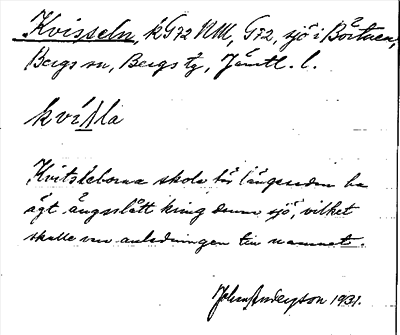 Kvisseln, k G72 NM, G72, sjö i Börtnen,
Bergs sn, Bergs tg, Jämtl. l.
kvíſlä
Kvitsleborna skola för längesedan ha
ägt ängsslått kring denna sjö, vilket
skulle vara anledningen till namnet.
John Anderson 1931.